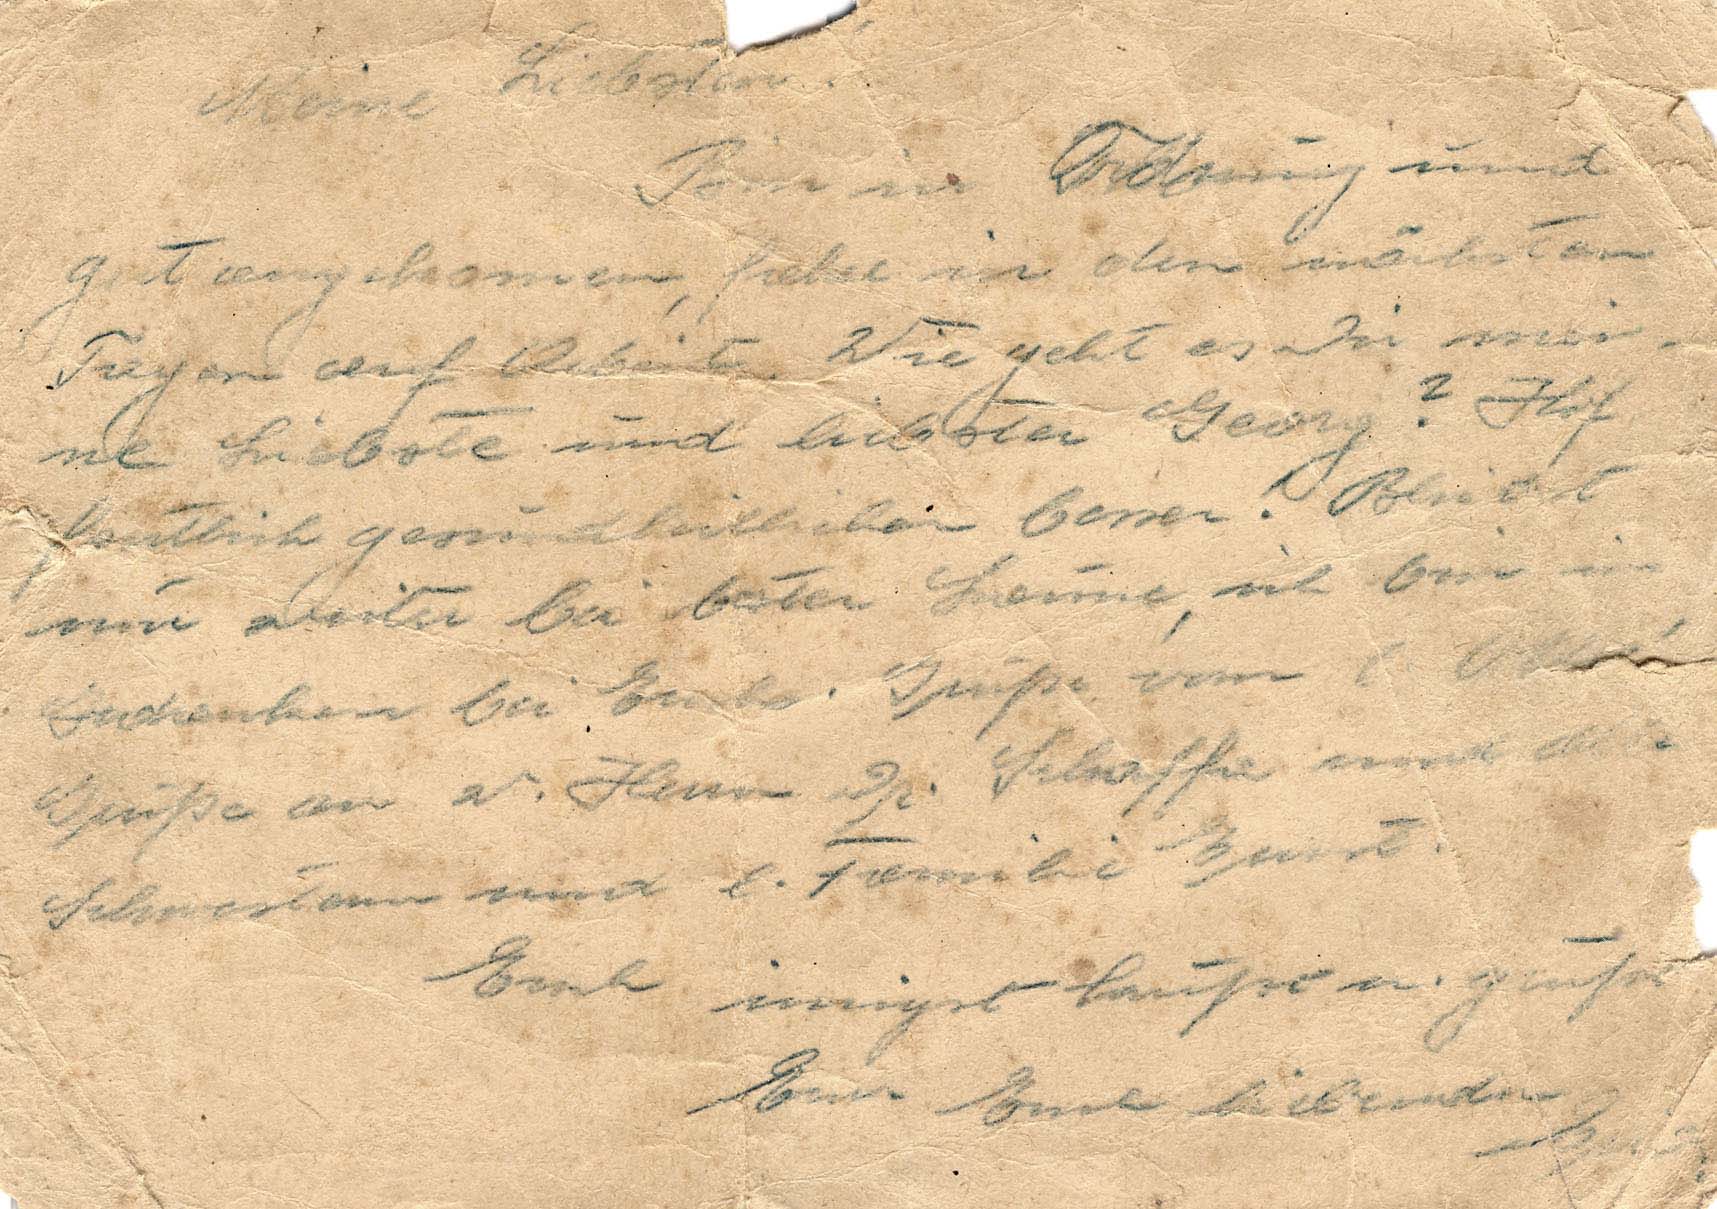 Meine Liebsten!
Bin in Ordnung und
gut angekommen, gehe in den nächsten
Tagen auf Arbeit. Wie geht es Dir mei-
ne Liebste und liebster Georg? Hof
fentlich gesundheitlicher besser! Bleibt
nur weiter bei bester Laune, ich bin in
Gedanken bei Euch. Grüße von l.
Grüße an d. Herrn Dr. und die
Schwestern und l. Familie
Euch innigst küßt u. grüßt
Euer Euch liebender